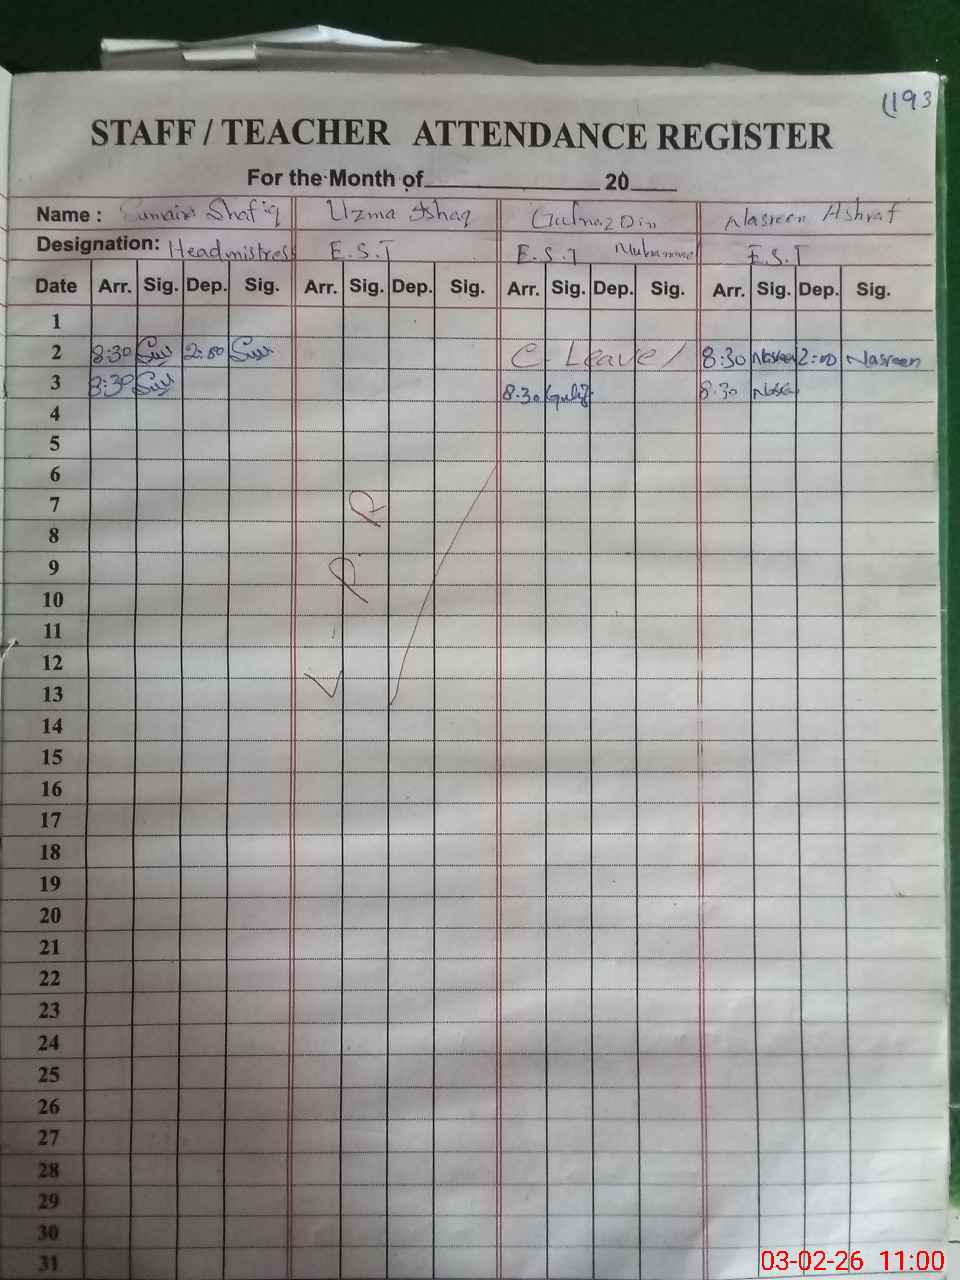 1193
STAFF / TEACHER ATTENDANCE REGISTER
For the Month of 20
Name : Sumaira Shafiq Uzma Ishaq Gulnaz Din Nasreen Ashraf
Designation: Headmistress E.S.T E.S.T Muhammad E.S.T
Date Arr. Sig. Dep. Sig. Arr. Sig. Dep. Sig. Arr. Sig. Dep. Sig. Arr. Sig. Dep. Sig.
1
2 8:30 2:00 C Leave 8:30 Nasreen 2:00 Nasreen
3 8:30 8:30 8:30
4
5
6
7
8
9
10
11
12
13
L.P.R
14
15
16
17
18
19
20
21
22
23
24
25
26
27
28
29
30
31
03-02-26 11:00